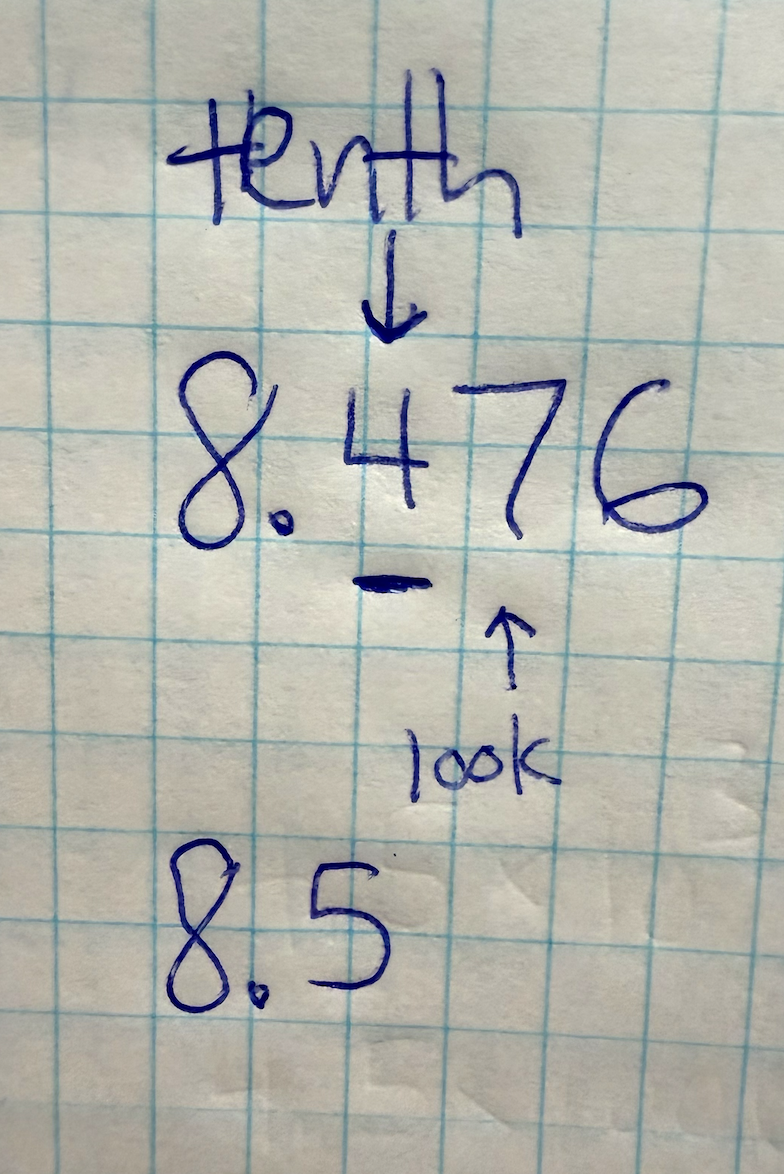 tenth
↓
8.476
↑
look
8.5